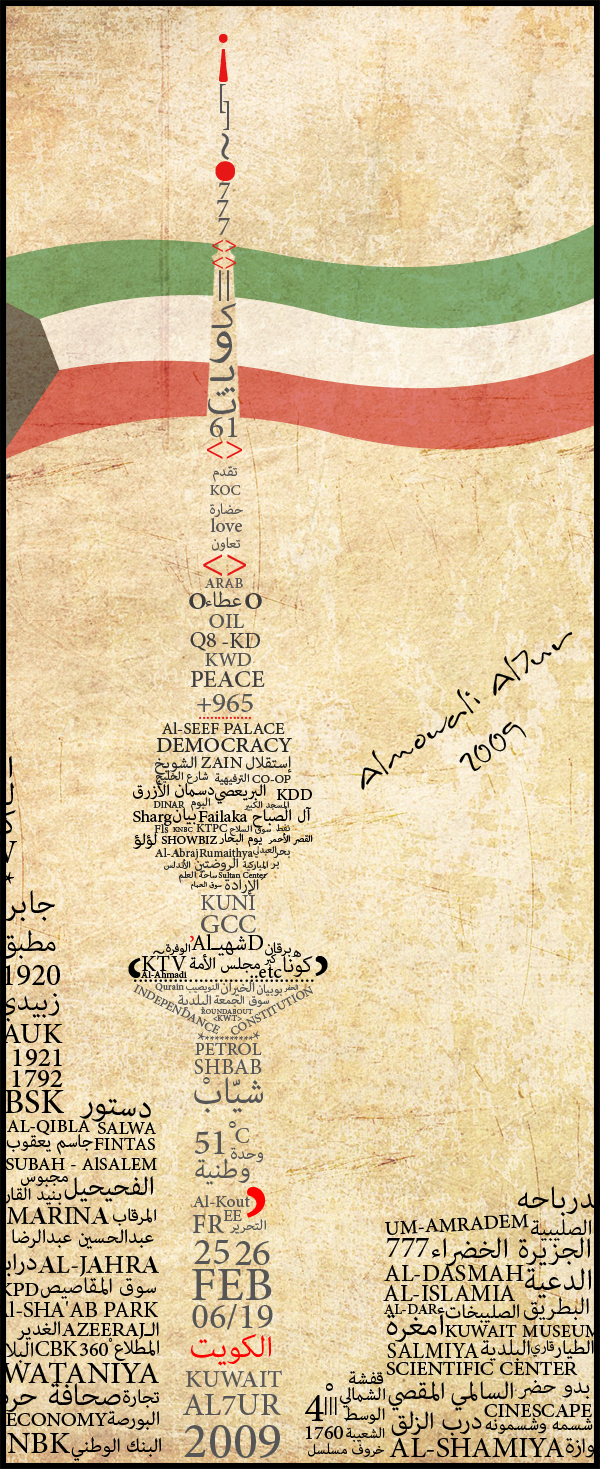 777
< >
< >
61
< >
تقدم
KOC
حضارة
love
تعاون
< >
ARAB
O عطاء O
OIL
Q8 -KD
KWD
PEACE
+965
Al-SEEF PALACE
DEMOCRACY
إستقلال ZAIN الشويخ
شارع الخليج الترفيهية CO-OP
البريعصي دسمان الأزرق KDD
DINAR اليوم المسجد الكبير
Sharg بيان Failaka آل الصباح
Fls KNBC KTPC سوق السلاح نفط
لؤلؤ SHOWBIZ يوم البحار القصر الأحمر
Al-Abraj Rumaithya
الأندلس الروضتين المباركية بر
ساحة العلم Sultan Center
الإرادة سوق الحمام
KUNI
GCC
برقان
الوفرة
KTV مجلس الأمة كبر كونا
Al-Ahmadi etc..
Qurain النويصيب الخيران بوبيان قطر
سوق الجمعة البلدية
ROUNDABOUT
<KWT>
INDEPENDANCE CONSTITUTION
***********
PETROL
SHBAB
شيّاب
51°C
وحدة
وطنية
Al-Kout
FREE
التحرير
25 26
FEB
06/19
الكويت
KUWAIT
AL7UR
2009
Almowali Al7ur
2009
جابر
مطبق
1920
زبيدي
AUK
1921
1792
BSK دستور
AL-QIBLA SALWA
جاسم يعقوب FINTAS
SUBAH - AlSALEM
مجبوس
الفحيحيل بنيد القار
MARINA المرقاب
عبدالحسين عبدالرضا
AL-JAHRA
KPD سوق المقاصيص
Al-SHA'AB PARK
الغدير AZEERAJـالـ
CBK 360° المطلاع
WATANIYA
تجارة صحافة حرة
ECONOMY البورصة
NBK البنك الوطني
UM-AMRADEM الصليبية
777 الجزيرة الخضراء
AL-DASMAH الدعية
AL-ISLAMIA
AL-DAR الصليبخات البطريق
أمغرة KUWAIT MUSEUM
SALMIYA البلدية قاري الطيار
SCIENTIFIC CENTER
السالمي المقصي بدو حضر
CINESCAPE
درب الزلق شسمه وشسمونه
AL-SHAMIYA
قفشة
الشمالي
4
الوسط
1760 الشعيبة
خروف مسلسل